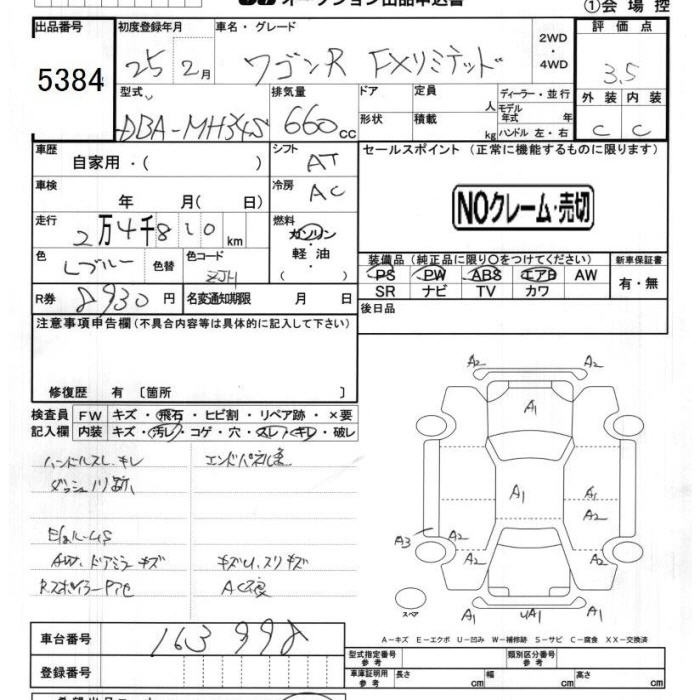 オークション出品申込書
①会場控
出品番号 初度登録年月 車名・グレード 評価点
5384 25 2月 ワゴンR FXリミテッド 2WD・4WD 3.5
型式 排気量 ドア 定員 人 ディーラー・並行 外装 内装
DBA-MH34S 660cc 形状 積載 kg モデル年式 年 ハンドル 左・右 C C
車歴 自家用・( ) シフト AT セールスポイント(正常に機能するものに限ります)
車検 年 月( 日) 冷房 AC
NOクレーム・売切
走行 2万4千810km 燃料 ガソリン・軽油・( )
色 Lブルー 色替 色コード ZJH
装備品(純正品に限り○をつけてください) 新車保証書
PS PW ABS エアB AW 有・無
SR ナビ TV カワ
R券 8930円 名変通知期限 月 日 後日品
注意事項申告欄(不具合内容等は具体的に記入して下さい)
修復歴 有〔箇所 〕
検査員 FW キズ・飛石・ヒビ割・リペア跡・×要
記入欄 内装 キズ・汚レ・コゲ・穴・スレ・キレ・破レ
ハンドルスレ、キレ
ダッシュ
エンドパネル
ドアミラーキズ キズU、スリキズ
A2 A2
A1
A1 A1
A2
A3 A2 A2
A2 A2
UA1 A1
スペア
A-キズ E-エクボ U-凹み W-補修跡 S-サビ C-腐食 XX-交換済
車台番号 163998
登録番号
型式指定番号 参考 類別区分番号 参考
車庫証明用 参考 長さ cm 幅 cm 高さ cm